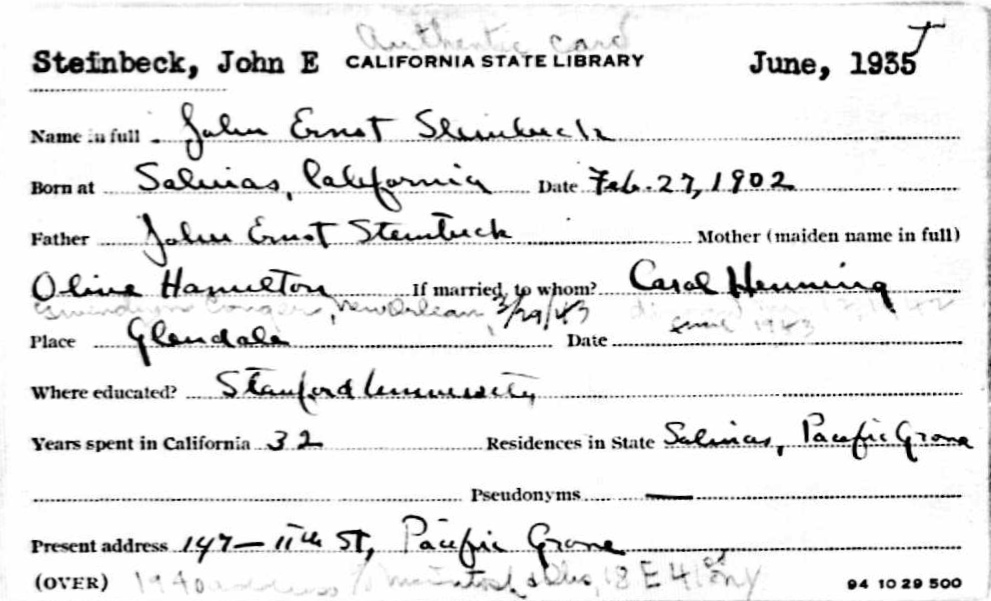 Authentic card
Steinbeck, John E CALIFORNIA STATE LIBRARY June, 1935
Name in full John Ernst Steinbeck
Born at Salinas, California Date Feb. 27, 1902
Father John Ernst Steinbeck Mother (maiden name in full)
Olive Hamilton If married, to whom? Carol Henning
Gwendolyn Conger, New Orleans, 3/29/43
Place Glendale Date
Where educated? Stanford University
Years spent in California 32 Residences in State Salinas, Pacific Grove
Pseudonyms —
Present address 147 — 11th St, Pacific Grove
(OVER) 1940 address McIntosh & Otis, 18 E 41st NY 94 10 29 500